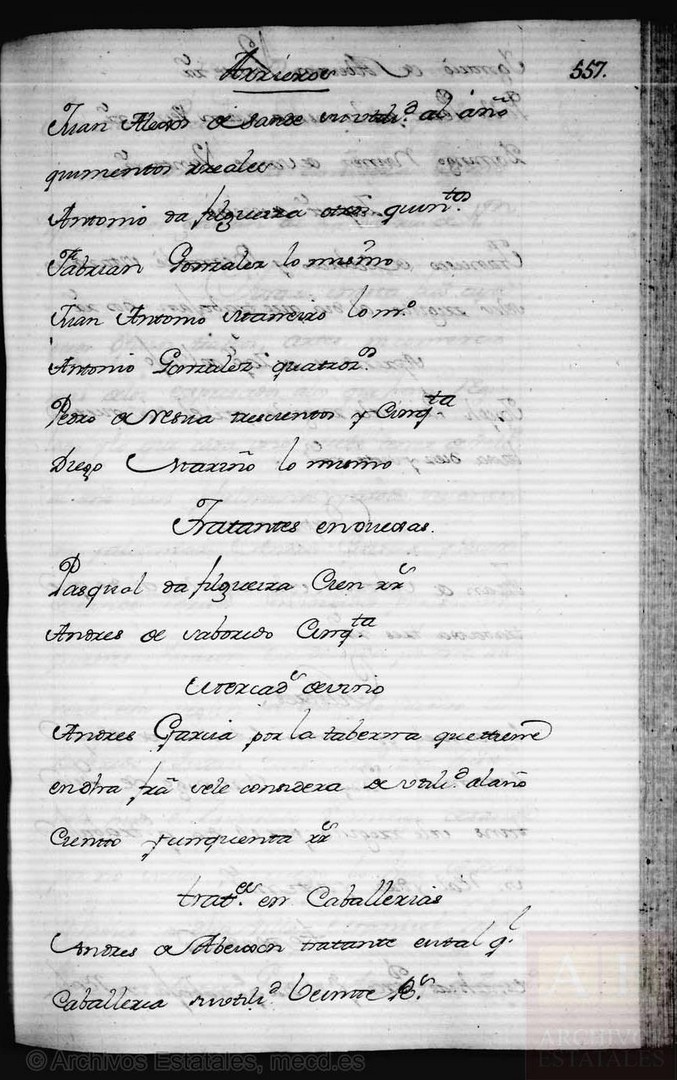 Arrieros
557.
Juan de Sande su utili.d al año
quinientos rreales
Antonio da filgueira otros quin.tos
Fabrian Gonzalez lo mismo
Juan Antonio Maneiro lo m.o
Antonio Gonzalez quatroz.os
Pedro de Nesua trescientos y Cinq.ta
Diego Mariño lo mismo
Tratantes en ouejas.
Pasqual da filgueira Cien rr.s
Andres de saborido Cinq.ta
Mercad.s de vino
Andres Garcia por la taberna que tiene
en dha frã sele considera de utili.d al año
Ciento y cinquenta rr.s
trat.es en Caballerias
Andres de tratante en tal q.l
Caballeria su utili.d Veinte R.s
© Archivos Estatales, mecd.es
ARCHIVOS
ESTATALES